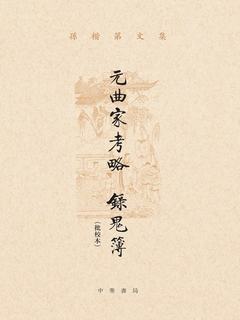 孫楷第文集
元曲家考略 錄鬼簿
(批校本)
中華書局